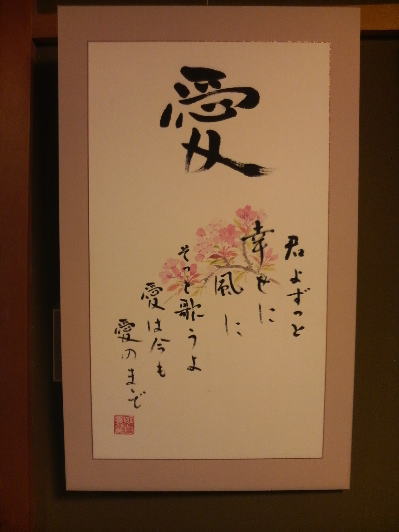 愛
君よずっと
幸せに
風に
そっと歌うよ
愛は今も
愛のまゝで